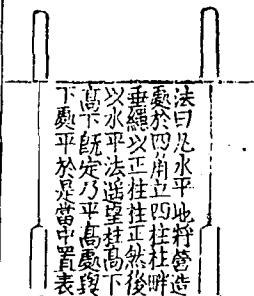 法曰凡水平地將營造
處於四角立四柱柱畔
垂繩以正柱柱正然後
以水平法遥望柱髙下
髙下既定乃平髙處與
下處平於是當中置表